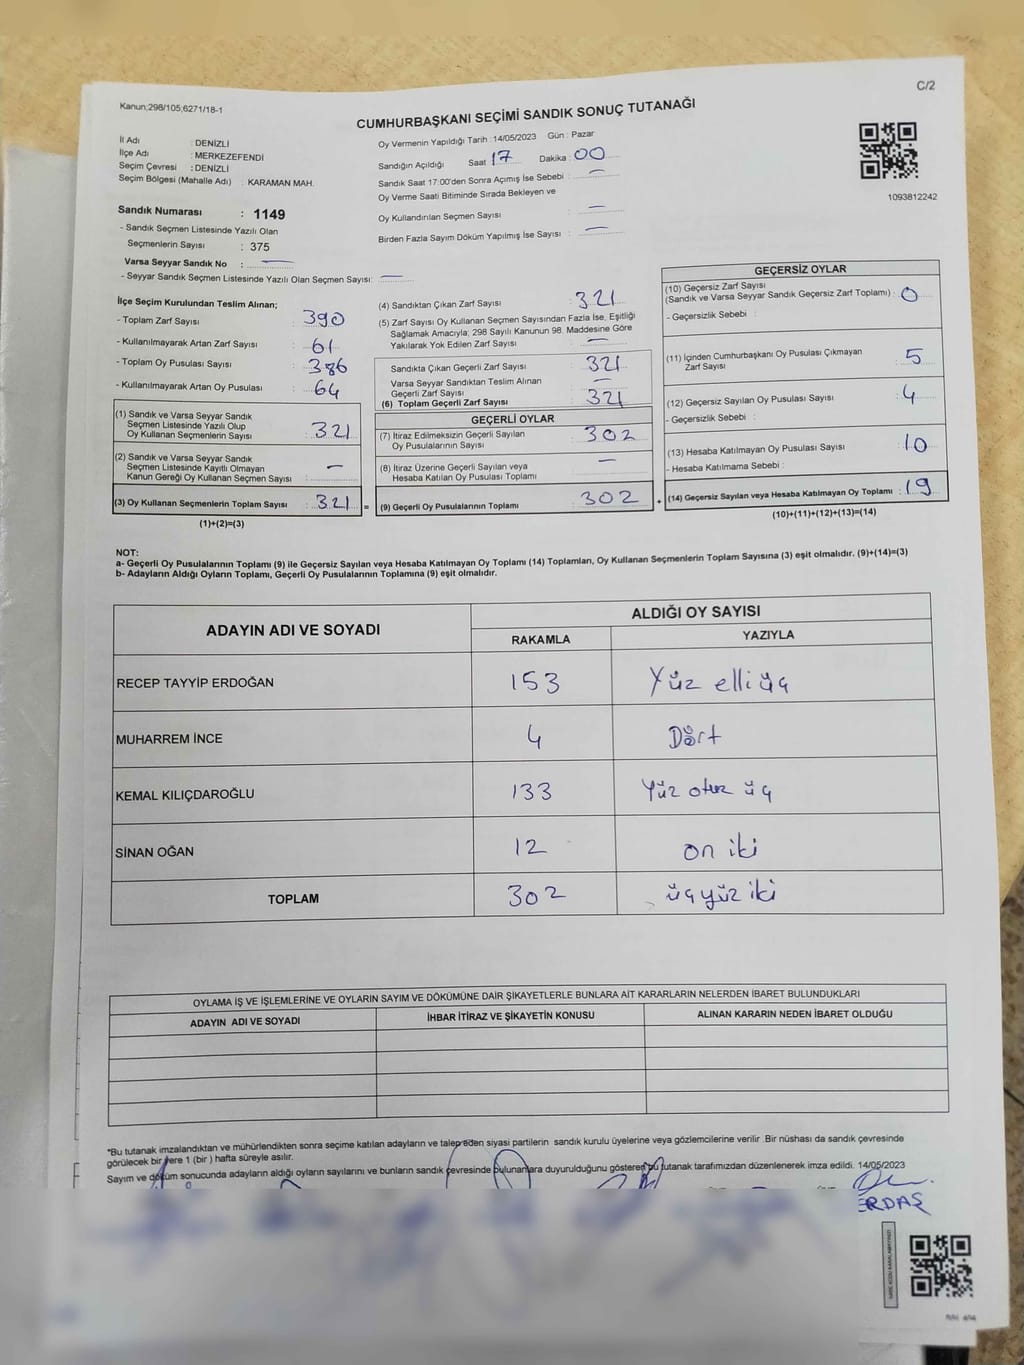 C/2
Kanun;298/105;6271/18-1
CUMHURBAŞKANI SEÇİMİ SANDIK SONUÇ TUTANAĞI
İl Adı : DENİZLİ
İlçe Adı : MERKEZEFENDİ
Seçim Çevresi : DENİZLİ
Seçim Bölgesi (Mahalle Adı) : KARAMAN MAH.
Sandık Numarası : 1149
- Sandık Seçmen Listesinde Yazılı Olan
Seçmenlerin Sayısı : 375
Varsa Seyyar Sandık No : —
- Seyyar Sandık Seçmen Listesinde Yazılı Olan Seçmen Sayısı: —
Oy Vermenin Yapıldığı Tarih : 14/05/2023 Gün : Pazar
Sandığın Açıldığı Saat 17 Dakika : 00
Sandık Saat 17:00'den Sonra Açımış İse Sebebi : —
Oy Verme Saati Bitiminde Sırada Bekleyen ve
Oy Kullandırılan Seçmen Sayısı : —
Birden Fazla Sayım Döküm Yapılmış İse Sayısı : —
1093812242
İlçe Seçim Kurulundan Teslim Alınan;
- Toplam Zarf Sayısı : 390
- Kullanılmayarak Artan Zarf Sayısı : 61
- Toplam Oy Pusulası Sayısı : 386
- Kullanılmayarak Artan Oy Pusulası : 64
(1) Sandık ve Varsa Seyyar Sandık
Seçmen Listesinde Yazılı Olup
Oy Kullanan Seçmenlerin Sayısı : 321
(2) Sandık ve Varsa Seyyar Sandık
Seçmen Listesinde Kayıtlı Olmayan
Kanun Gereği Oy Kullanan Seçmen Sayısı : —
(3) Oy Kullanan Seçmenlerin Toplam Sayısı : 321 =
(1)+(2)=(3)
(4) Sandıktan Çıkan Zarf Sayısı : 321
(5) Zarf Sayısı Oy Kullanan Seçmen Sayısından Fazla İse, Eşitliği
Sağlamak Amacıyla; 298 Sayılı Kanunun 98. Maddesine Göre
Yakılarak Yok Edilen Zarf Sayısı : —
Sandıkta Çıkan Geçerli Zarf Sayısı : 321
Varsa Seyyar Sandıktan Teslim Alınan
Geçerli Zarf Sayısı : —
(6) Toplam Geçerli Zarf Sayısı : 321
GEÇERLİ OYLAR
(7) İtiraz Edilmeksizin Geçerli Sayılan
Oy Pusulalarının Sayısı : 302
(8) İtiraz Üzerine Geçerli Sayılan veya
Hesaba Katılan Oy Pusulası Toplamı : —
(9) Geçerli Oy Pusulalarının Toplamı : 302 +
GEÇERSİZ OYLAR
(10) Geçersiz Zarf Sayısı
(Sandık ve Varsa Seyyar Sandık Geçersiz Zarf Toplamı) : 0
- Geçersizlik Sebebi :
(11) İçinden Cumhurbaşkanı Oy Pusulası Çıkmayan
Zarf Sayısı : 5
(12) Geçersiz Sayılan Oy Pusulası Sayısı : 4
- Geçersizlik Sebebi :
(13) Hesaba Katılmayan Oy Pusulası Sayısı : 10
- Hesaba Katılmama Sebebi :
(14) Geçersiz Sayılan veya Hesaba Katılmayan Oy Toplamı : 19
(10)+(11)+(12)+(13)=(14)
NOT:
a- Geçerli Oy Pusulalarının Toplamı (9) ile Geçersiz Sayılan veya Hesaba Katılmayan Oy Toplamı (14) Toplamları, Oy Kullanan Seçmenlerin Toplam Sayısına (3) eşit olmalıdır. (9)+(14)=(3)
b- Adayların Aldığı Oyların Toplamı, Geçerli Oy Pusulalarının Toplamına (9) eşit olmalıdır.
ADAYIN ADI VE SOYADI ALDIĞI OY SAYISI
RAKAMLA YAZIYLA
RECEP TAYYİP ERDOĞAN 153 Yüz elli üç
MUHARREM İNCE 4 Dört
KEMAL KILIÇDAROĞLU 133 Yüz otuz üç
SİNAN OĞAN 12 on iki
TOPLAM 302 üçyüz iki
OYLAMA İŞ VE İŞLEMLERİNE VE OYLARIN SAYIM VE DÖKÜMÜNE DAİR ŞİKAYETLERLE BUNLARA AİT KARARLARIN NELERDEN İBARET BULUNDUKLARI
ADAYIN ADI VE SOYADI İHBAR İTİRAZ VE ŞİKAYETİN KONUSU ALINAN KARARIN NEDEN İBARET OLDUĞU
*Bu tutanak imzalandıktan ve mühürlendikten sonra seçime katılan adayların ve talep eden siyasi partilerin sandık kurulu üyelerine veya gözlemcilerine verilir .Bir nüshası da sandık çevresinde
görülecek bir yere 1 (bir ) hafta süreyle asılır.
Sayım ve döküm sonucunda adayların aldığı oyların sayılarını ve bunların sandık çevresinde bulunanlara duyurulduğunu gösteren bu tutanak tarafımızdan düzenlenerek imza edildi. 14/05/2023
ERDAŞ